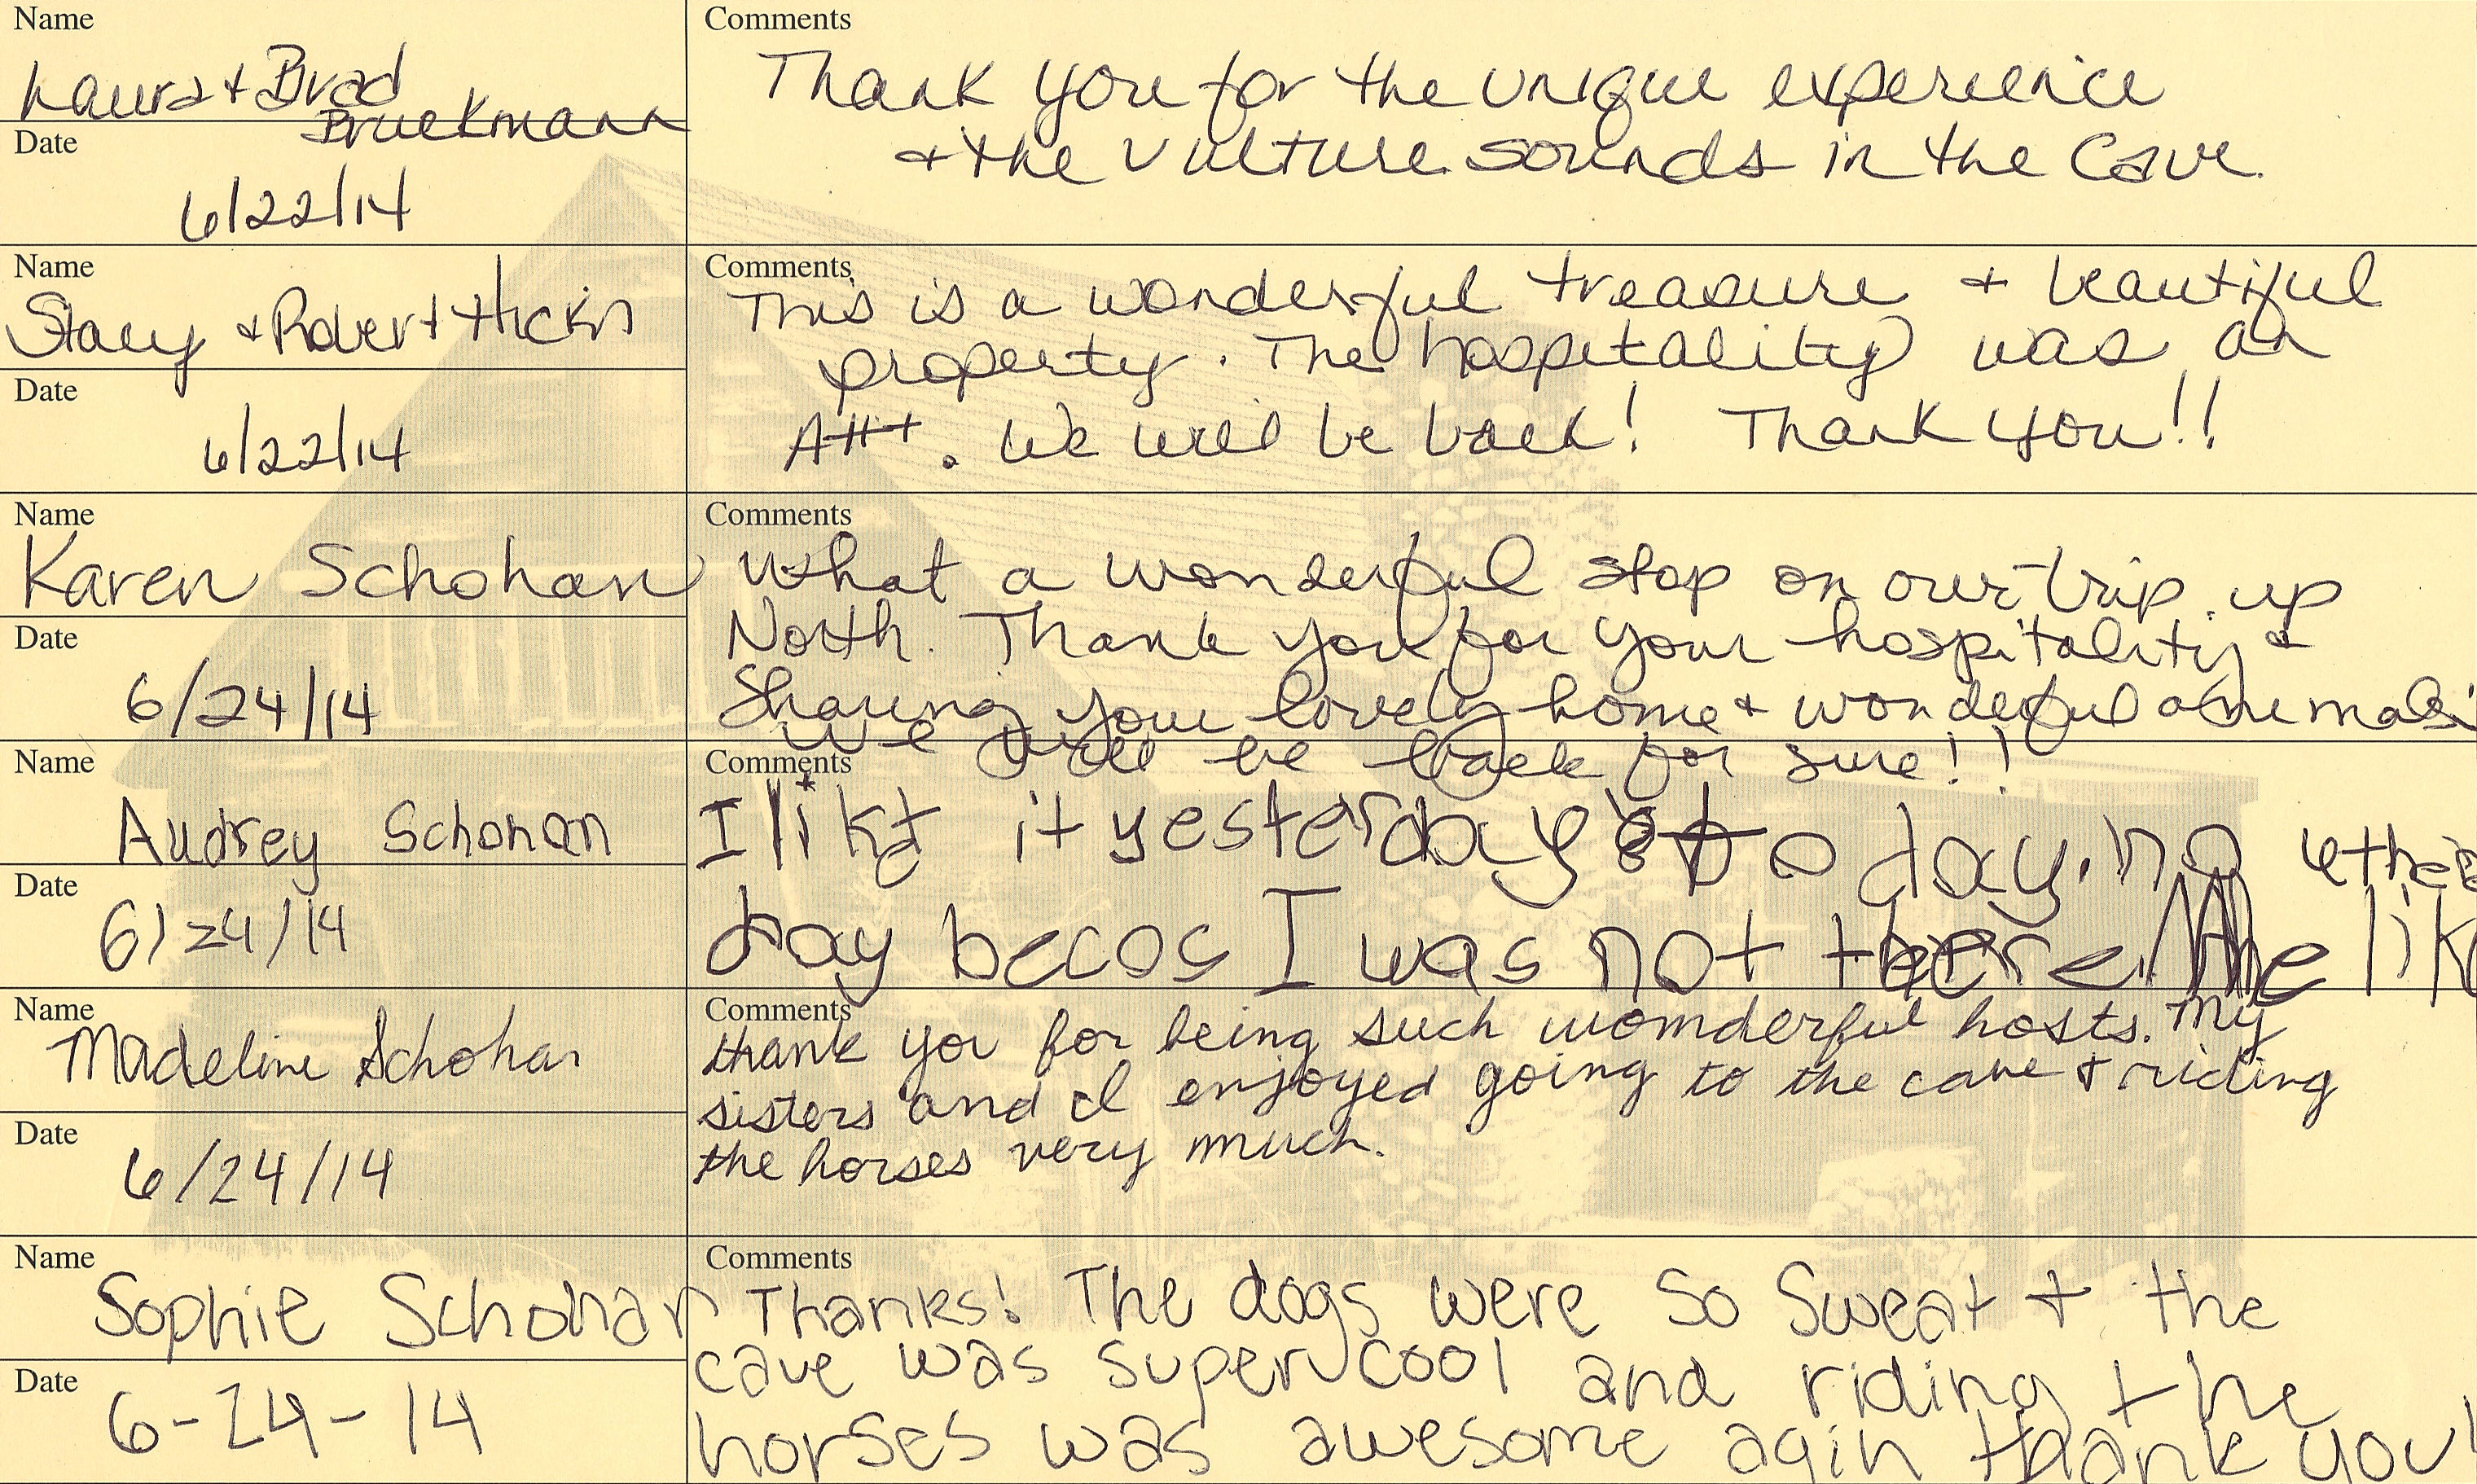 Name
Comments
Laura + Brad
Bruekmann
Thank you for the unique experience
+ the vulture sounds in the Cave.
Date
6/22/14
Name
Comments
Stacy + Robert
This is a wonderful treasure + beautiful
property. The hospitality was an
Date
A+++. We will be back! Thank you!!
6/22/14
Name
Comments
Karen Schohan
What a wonderful stop on our trip up
North. Thank you for your hospitality +
Date
6/24/14
Sharing your lovely home + wonderful animals!
We will be back for sure!!
Name
Comments
Audrey Schohan
I likt it yesterday & to day. no
Date
6/24/14
day becos I was not there. like
Name
Comments
Madeline Schohan
thank you for being such womderful hosts. My
sisters and I enjoyed going to the cave + riding
the horses very much.
Date
6/24/14
Name
Comments
Sophie Schohan
Thanks! The dogs were so sweat + the
cave was super cool and riding the
Date
6-24-14
horses was awesome agin thank you!